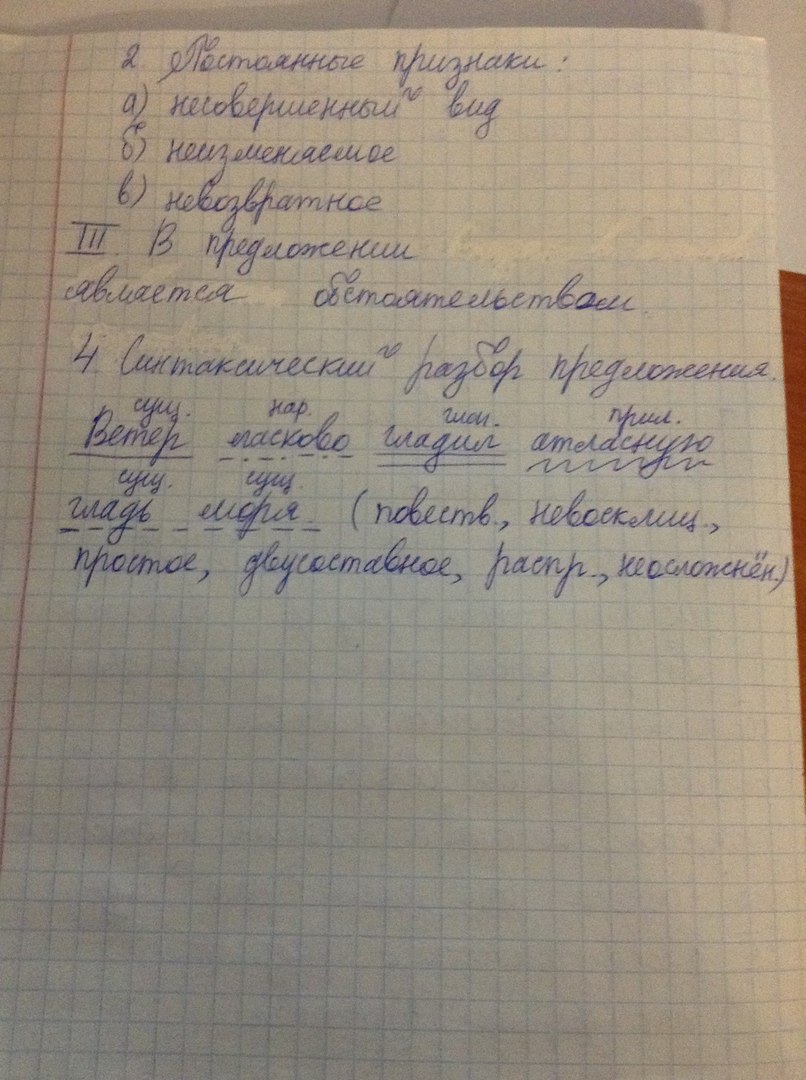 2. Постоянные признаки:
а) несовершенный вид
б) неизменяемое
в) невозвратное
III. В предложении
является обстоятельством.
4. Синтаксический разбор предложения.
сущ. нар. глаг. прил.
Ветер ласково гладил атласную
сущ. сущ.
гладь моря (повеств., невосклиц.,
простое, двусоставное, распр., неосложнён.)